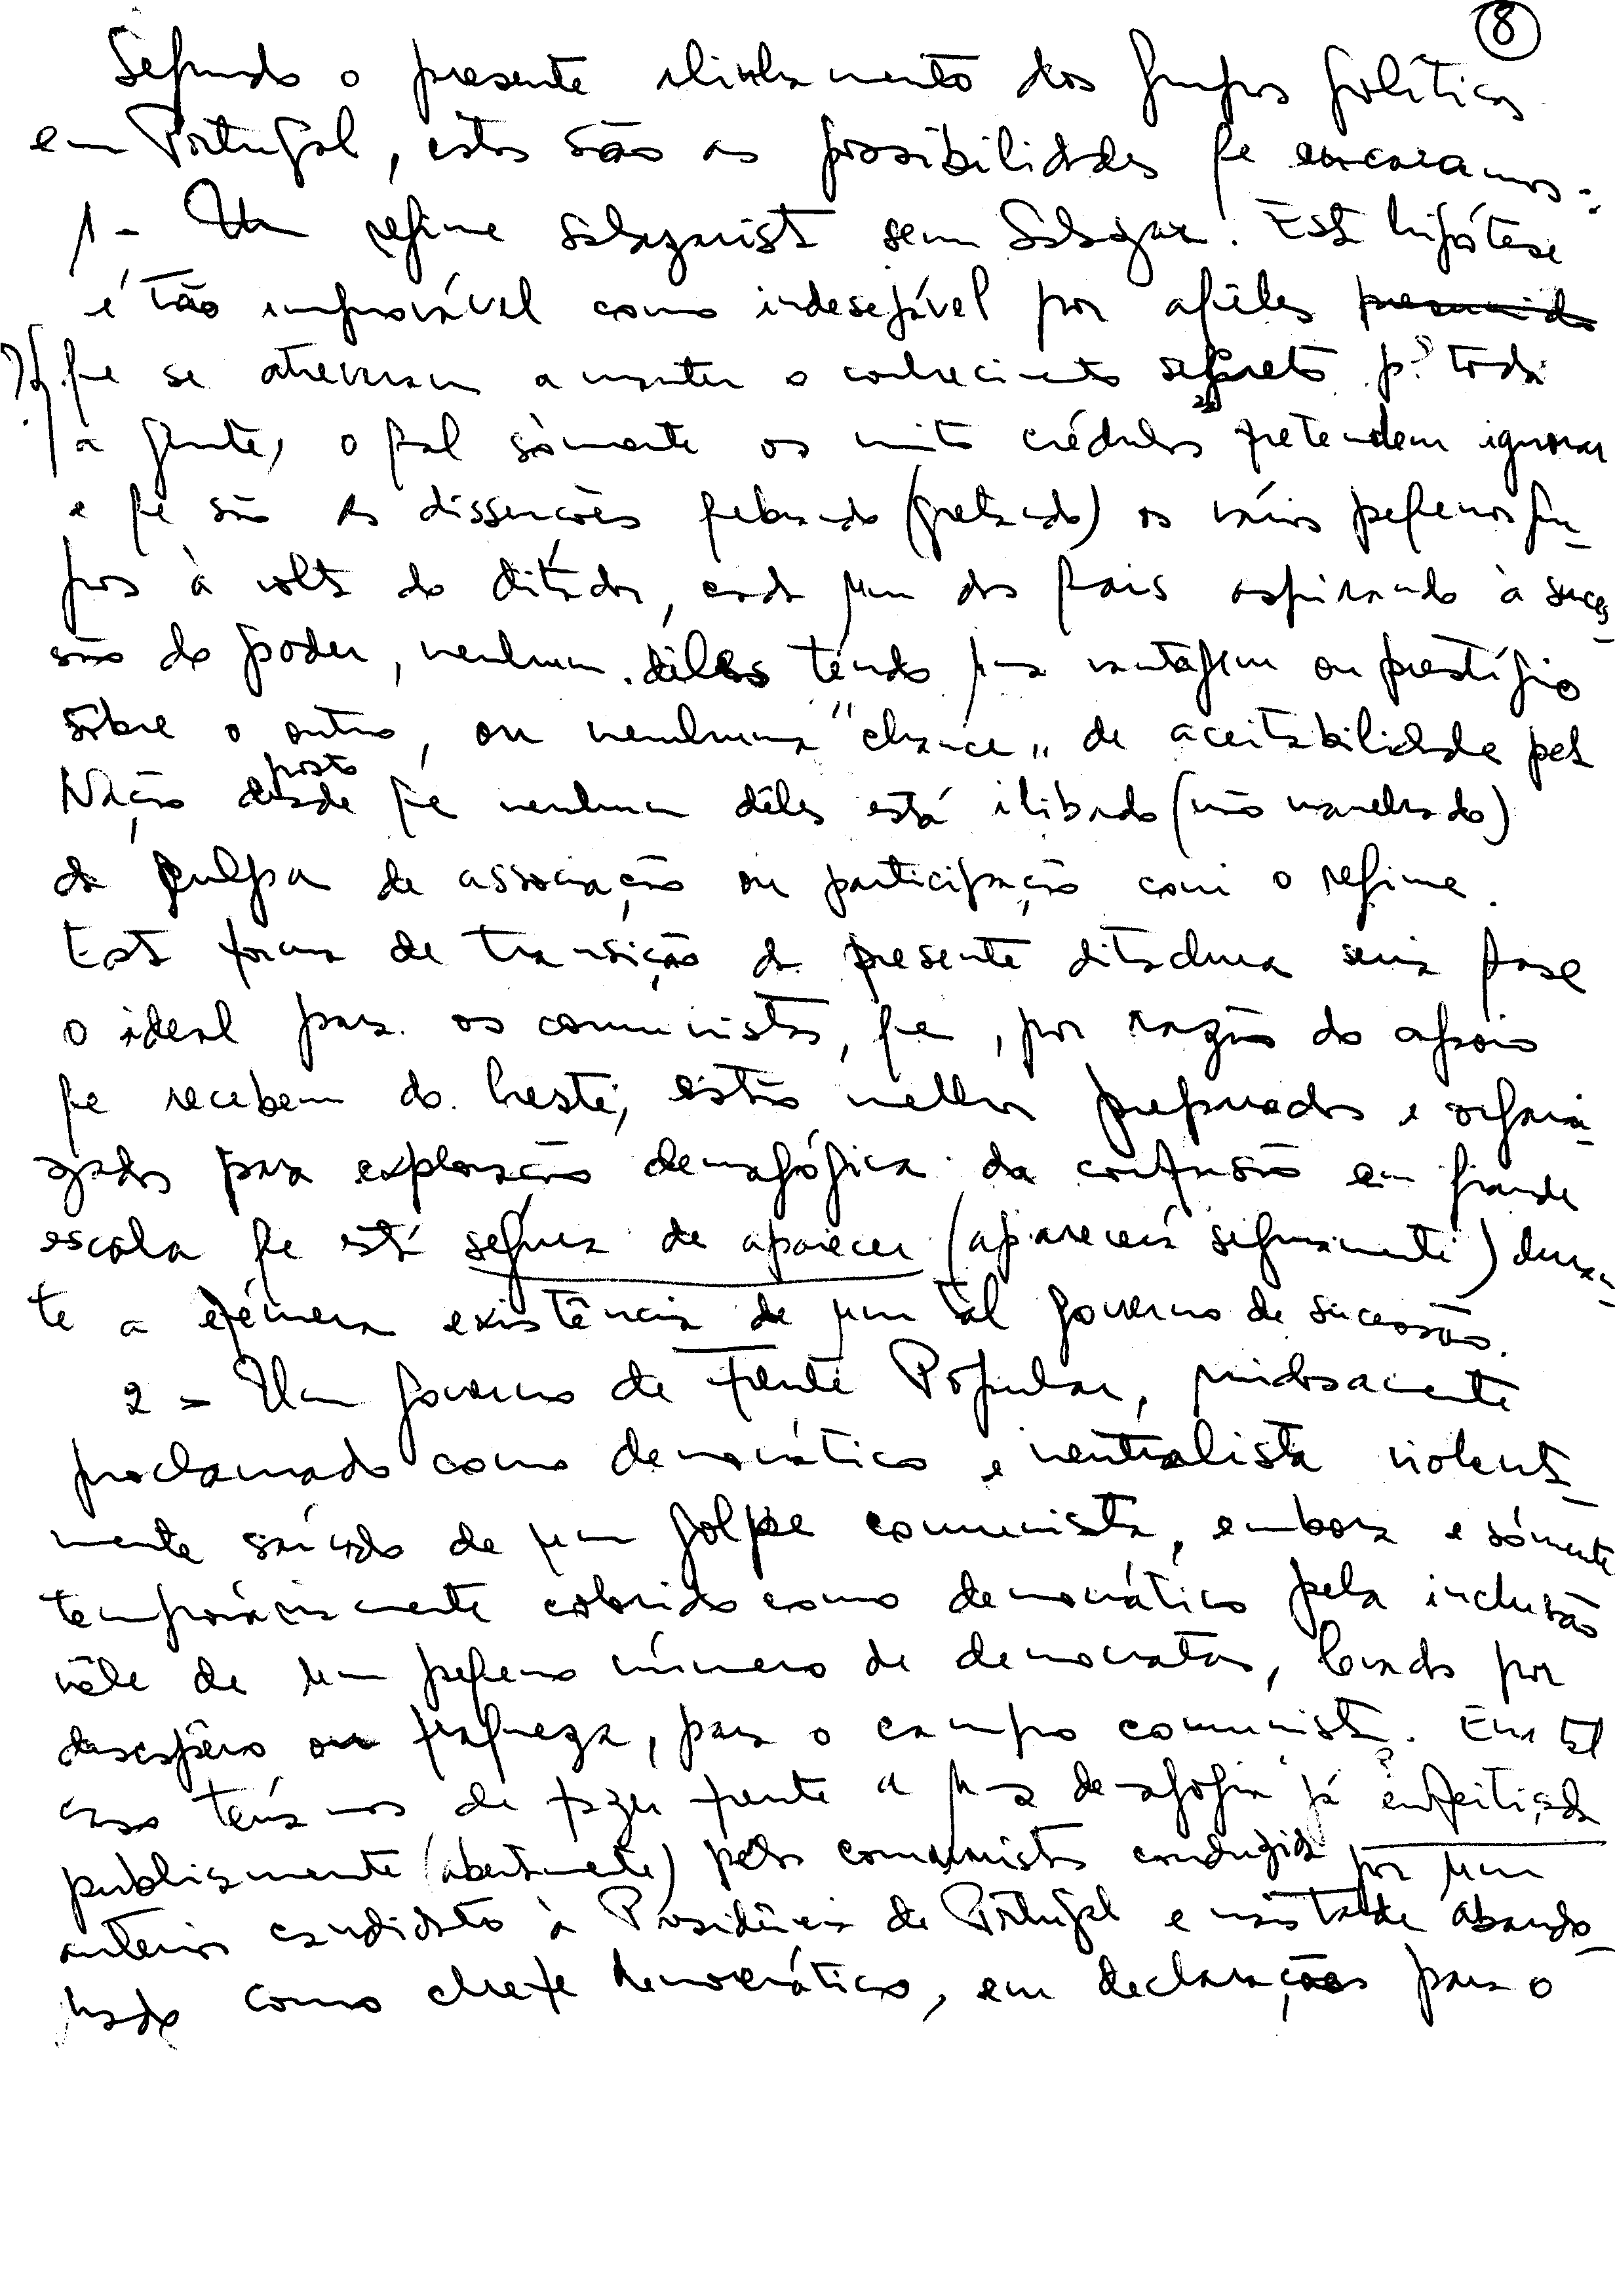 8
Segundo o presente alinhamento dos grupos políticos
em Portugal, estas são as possibilidades qe encaramos:
1 - Um regime salazarista sem Salazar. Esta hipótese
é tão improvável como indesejável por aqueles
qe se atreveram a manter o conhecimento secreto pª toda
a gente, o qal sòmente os muito crédulos pretendem ignorar
e qe são as dissenções qebrando (gretando) os vários peqenos gru-
pos à volta do ditador, cada um dos qais aspirando à suces-
são do poder, nenhum dêles tendo uma vantagem ou prestígio
sôbre o outro, ou nenhuma "chance" de aceitabilidade pela
posto
Nação desde qe nenhum dêles está ilibado (não manchado)
da culpa de associação ou participação com o regime.
Esta forma de transição da presente ditadura seria qase
o ideal para os comunistas, qe, por razão do apoio
qe recebem do Leste, estão melhor preparados e organi-
zados para exploração demagógica da confusão em grande
escala qe está segura de aparecer (aparecerá seguramente) duran-
te a efémera existência de um tal governo de sucessão.
2 - Um governo de Frente Popular, ruidosamente
proclamado como democrático e neutralista violenta-
mente saído de um golpe comunista, embora e sómente
temporáriamente colorido como democrático pela inclusão
nêle de um peqeno número de democratas, levado por
desespêro ou fraqueza, para o campo comunista. Em tal
caso teríamos de fazer frente a uma demagogia já ? enfeitiçada
publicamente (abertamente) pelos comunistas conduzida por um
anterior candidato à Presidência de Portugal e mais tarde abando-
nado como chefe democrático, em declarações para o